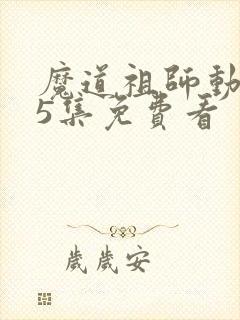 魔道祖師動
5集免費看
歲歲安